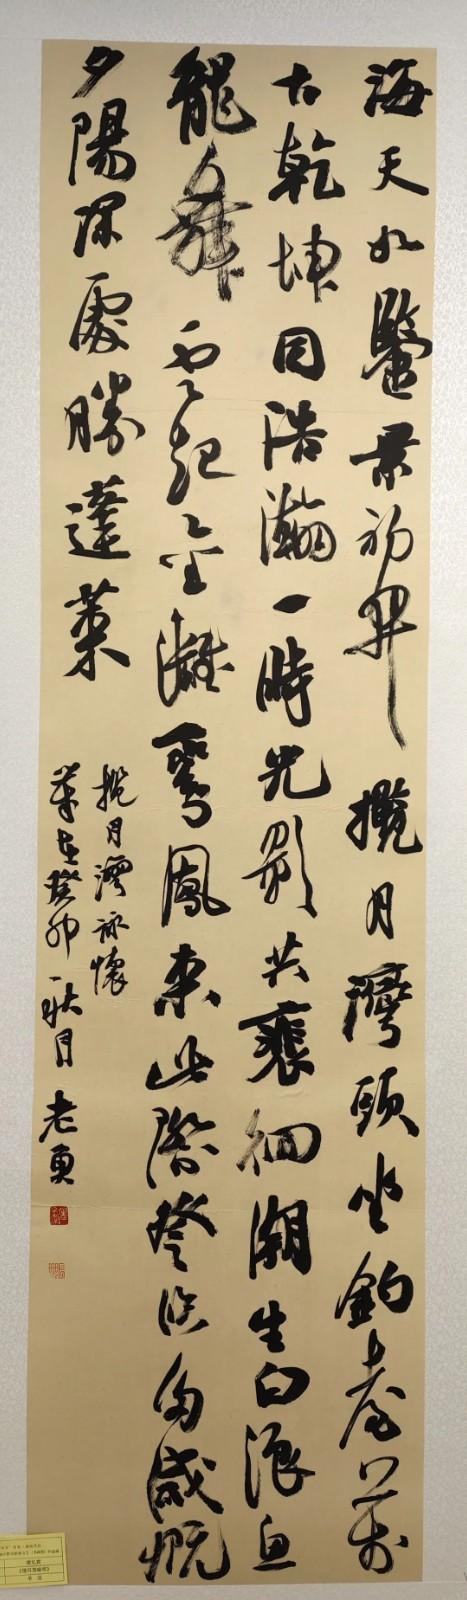 海天如鑒景初開攬月灣頭坐釣臺萬
古乾坤同浩瀚一時光影共裵徊潮生白浪魚
龍舞雲起金灘鸞鳳來此際登臨多感慨
夕陽深處勝蓬萊
攬月灣詠懷
歲在癸卯秋月老